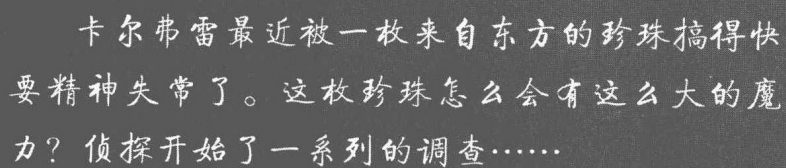 卡尔弗雷最近被一枚来自东方的珍珠搞得快
要精神失常了。这枚珍珠怎么会有这么大的魔
力？侦探开始了一系列的调查……